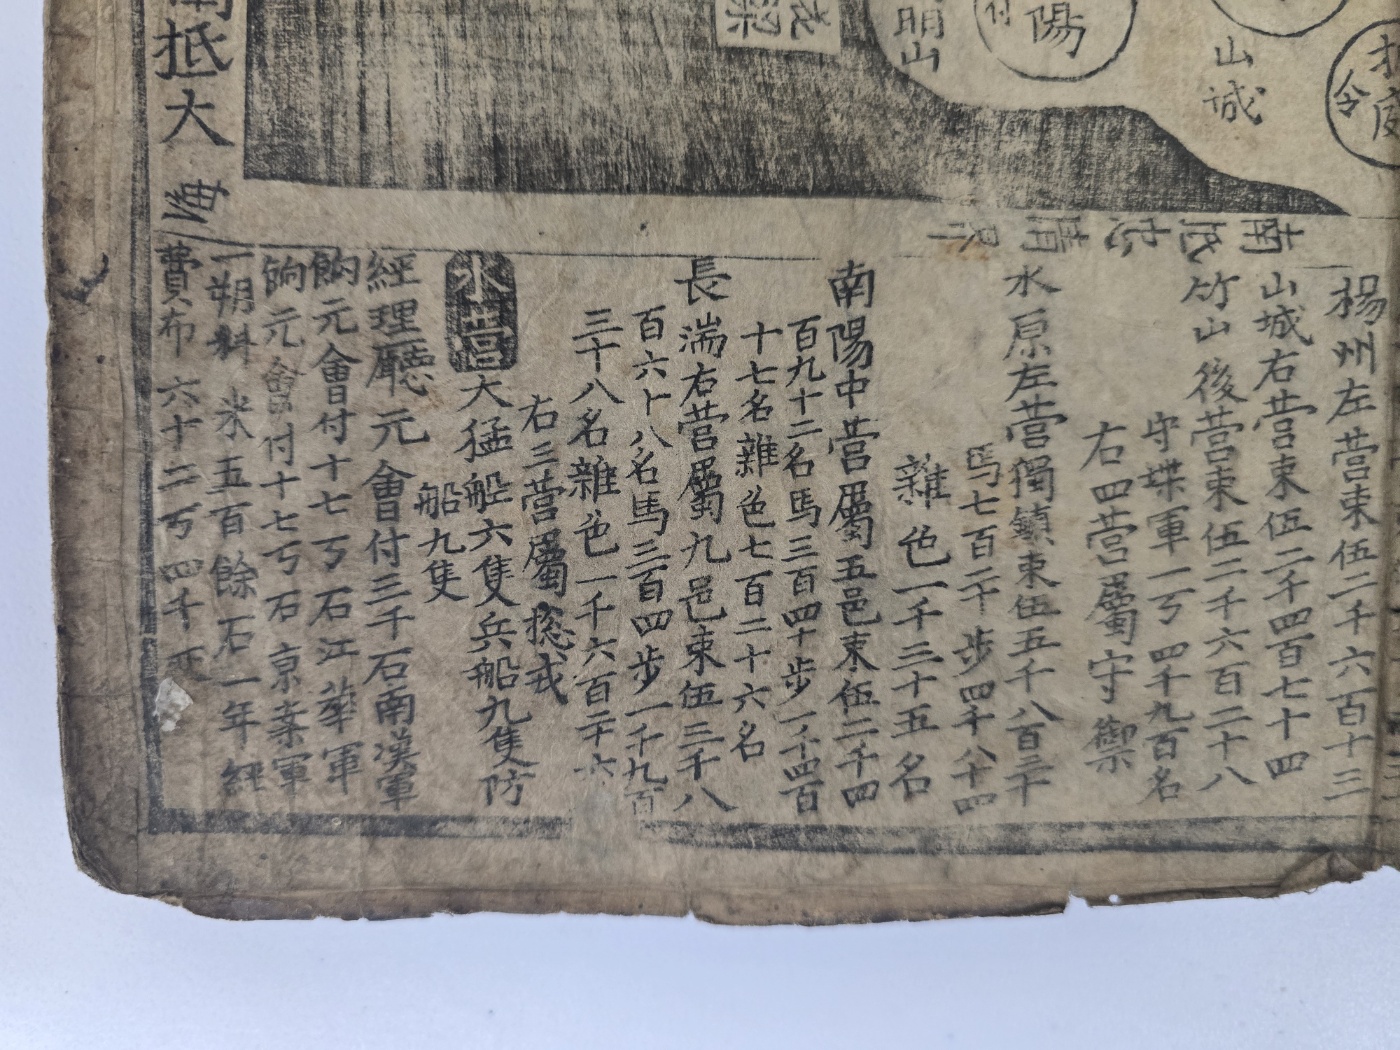 南抵大海
明山
陽
付
山城
令
南
楊州左營束伍二千六百十三
山城右營束伍二千四百七十四
竹山後營束伍二千六百二十八
守堞軍一丂四千九百名
右四營屬守禦
水原左營獨鎮束伍五千八百二十
馬七百二十步四千八十四
雜色一千三十五名
南陽中營屬五邑束伍二千四
百九十二名馬三百四十步一千四百
十七名雜色七百二十六名
長湍右營屬九邑束伍三千八
百六十八名馬三百四步一千九百
三十八名雜色一千六百二十六
右三營屬摠戎
水營
大猛船六隻兵船九隻防
船九隻
經理廳元會付三千石南漢軍
餉元會付十七丂石江華軍
餉元會付十七丂石京案軍
一朔料米五百餘石一年經
費布六十二丂四千疋